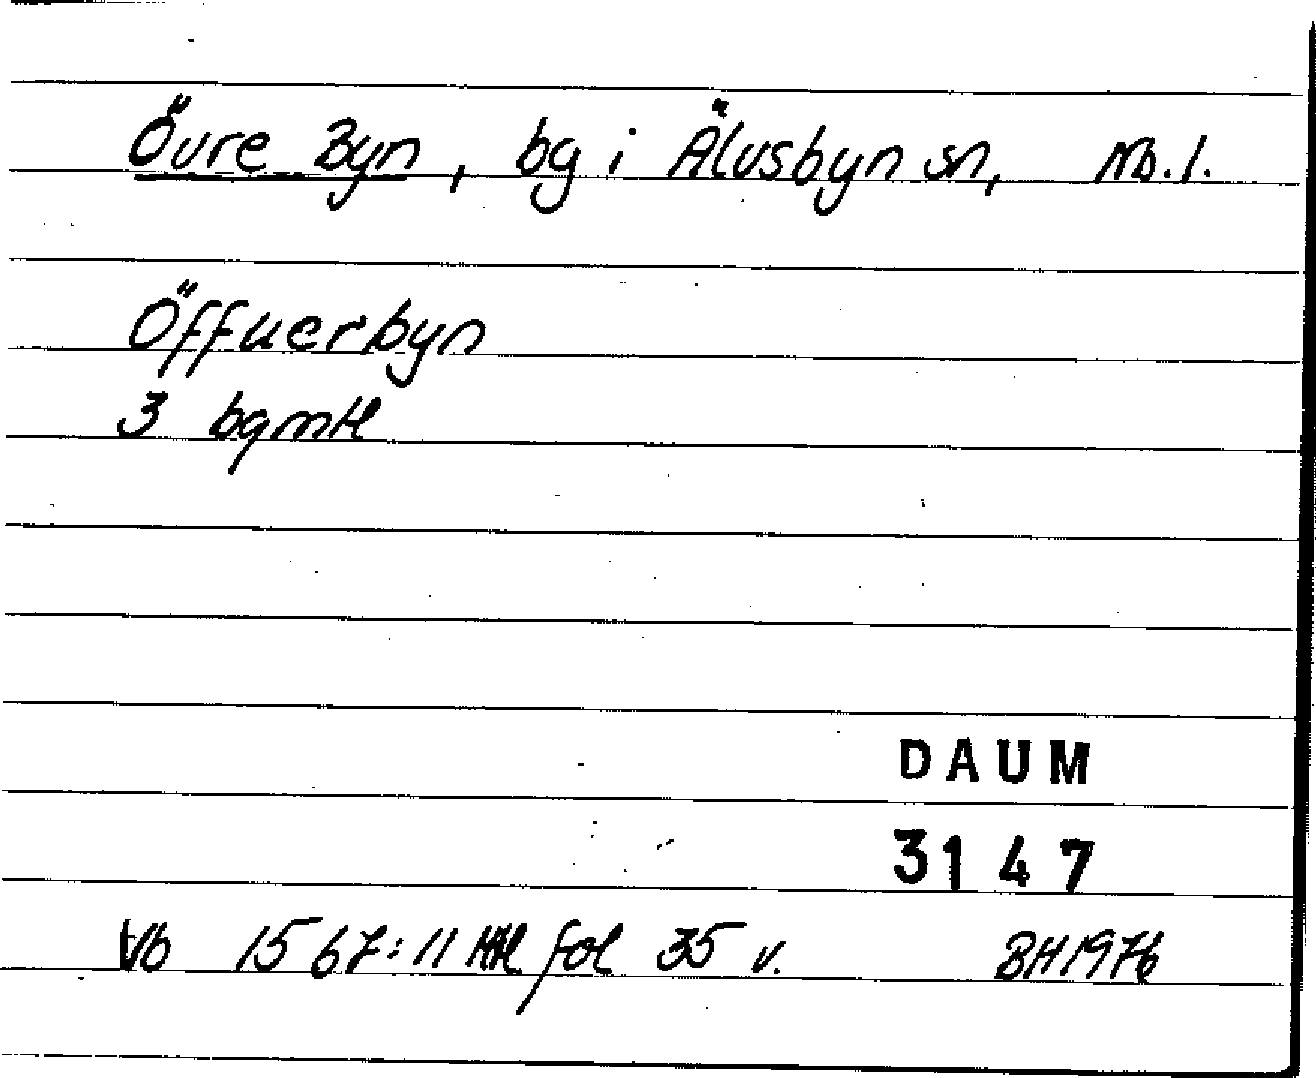 Övre Byn, bg i Älvsbyn sn, Nb.l.
Öffuerbyn
3 bgmtl
DAUM
3147
Vb 1567:11 HH fol 35 v. BH1976